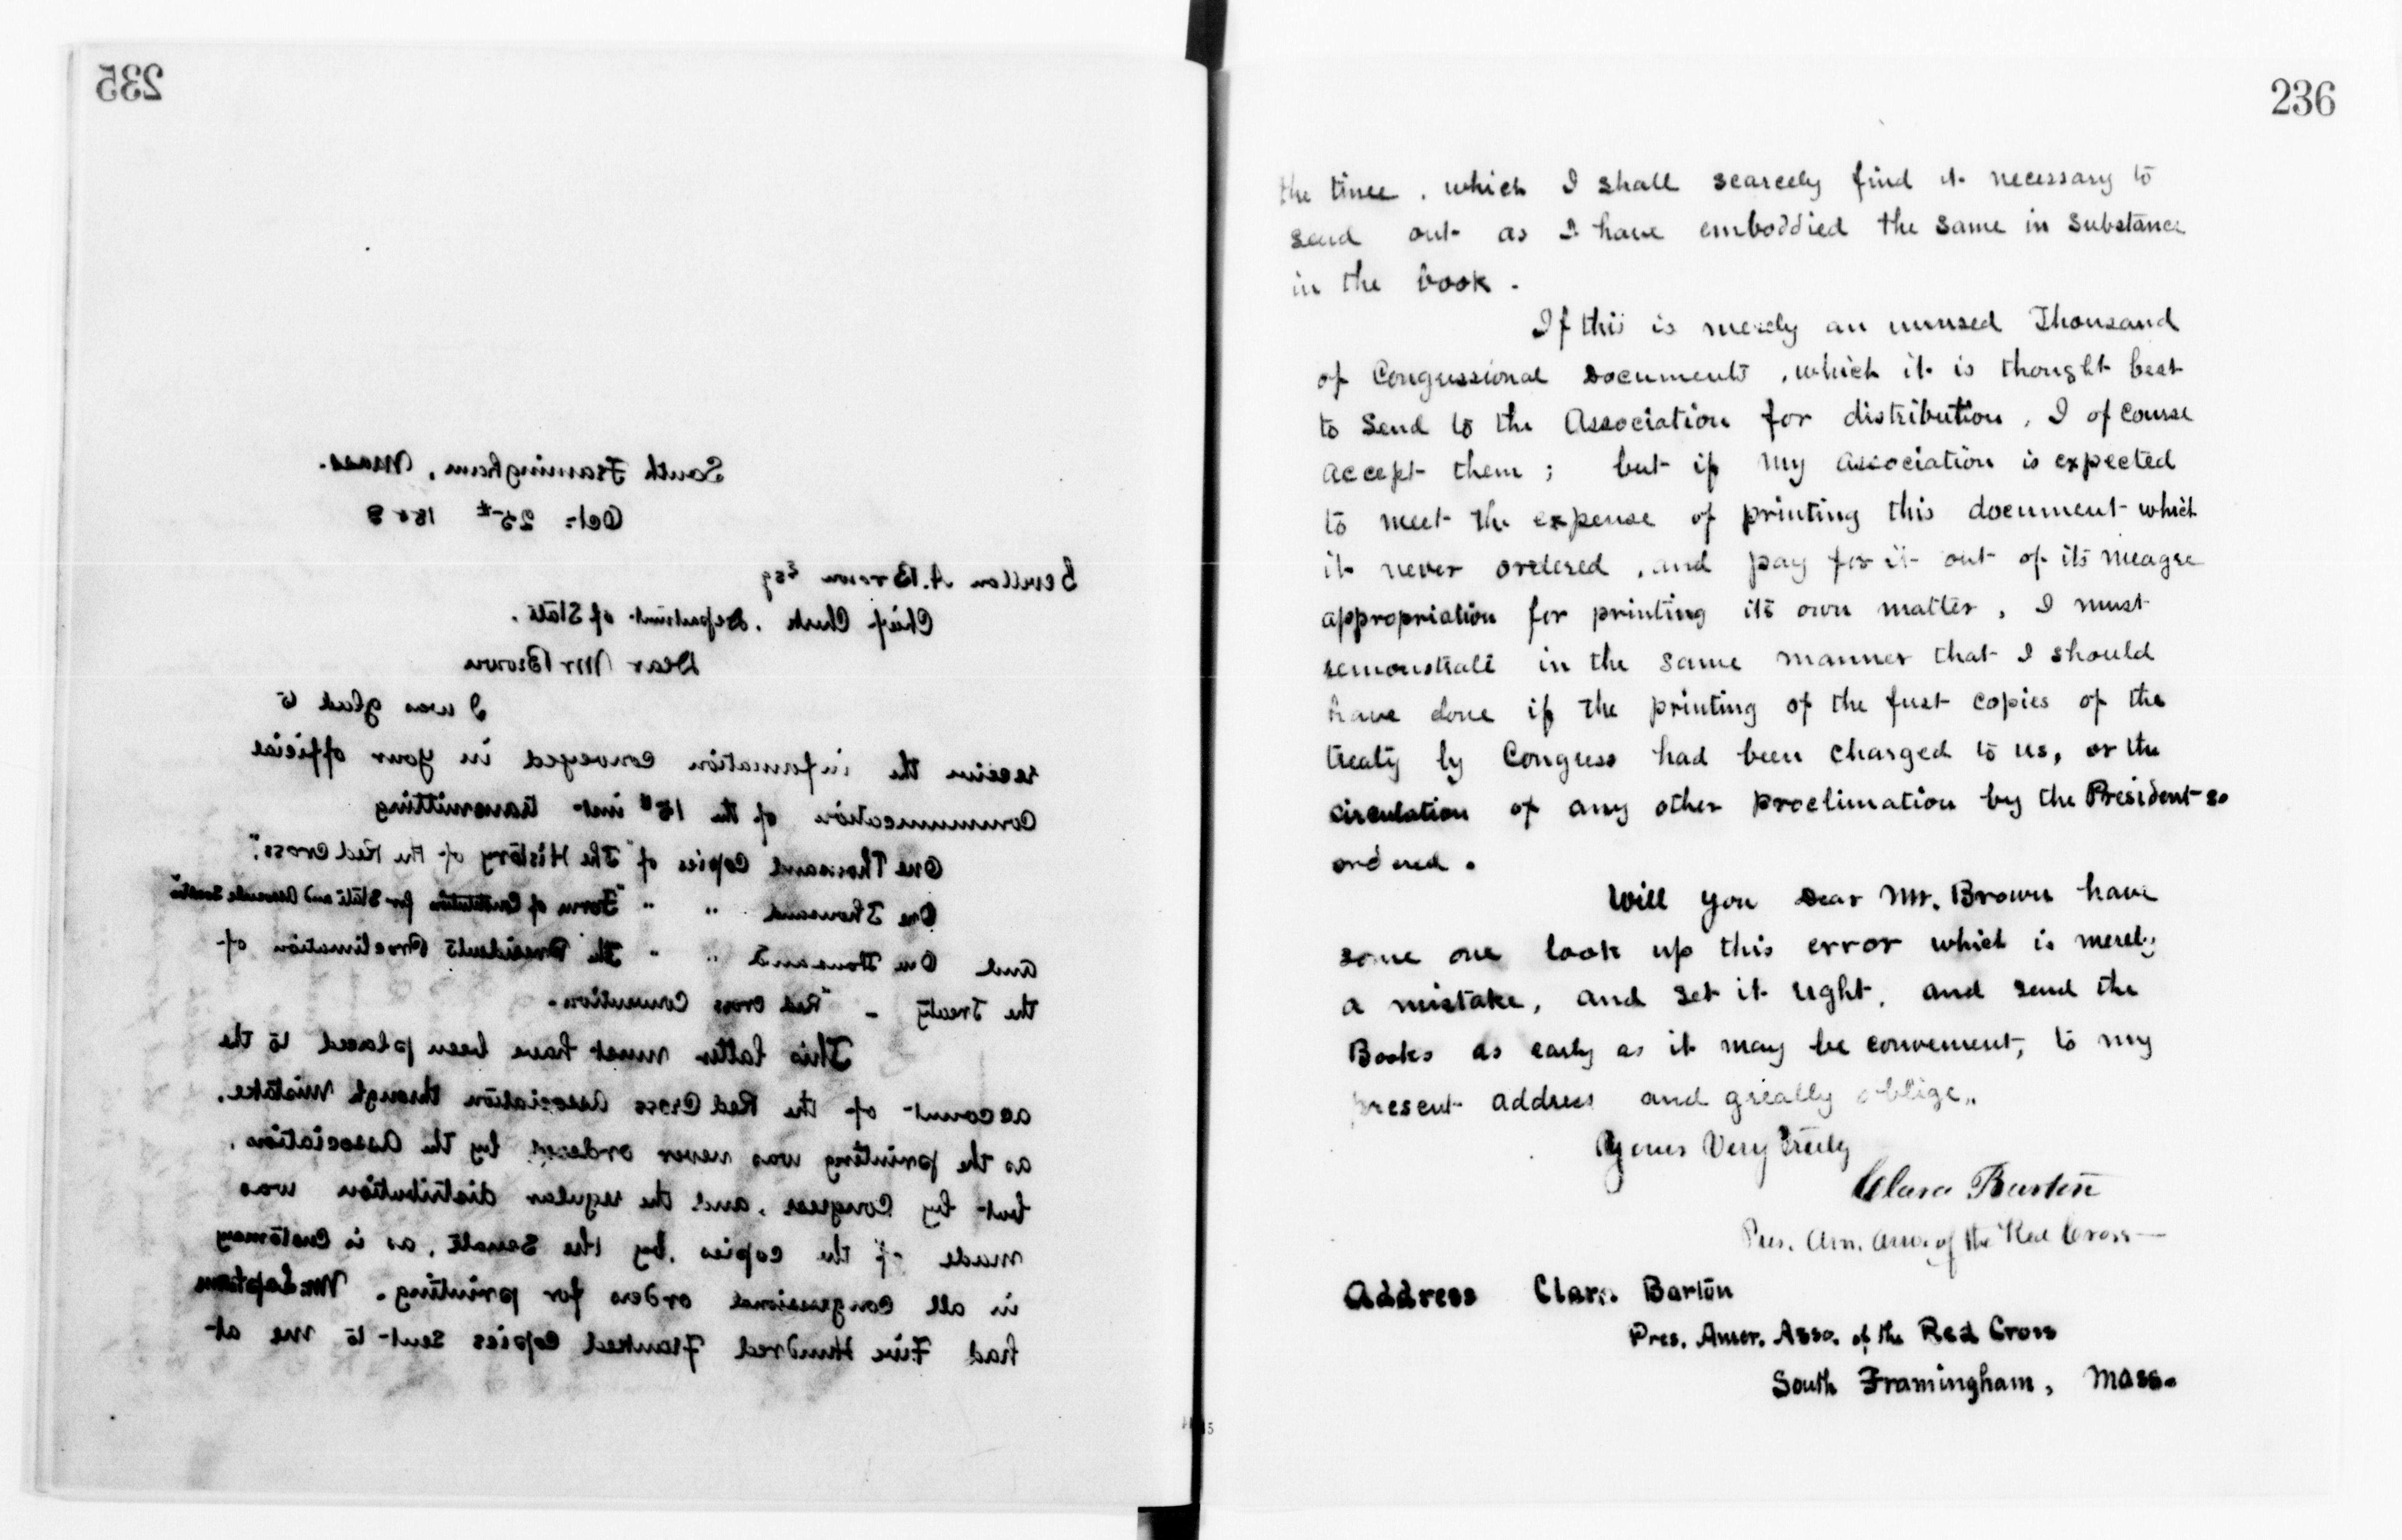 235
South Framingham, Mass.
Oct. 25th 1883
Sevillon A. Brown Esq
Chief Clerk, Department of State.
Dear Mr Brown
I was glad to
receive the information conveyed in your official
communication of the 18th inst transmitting
One Thousand Copies of "The History of the Red Cross".
One Thousand " " "Form of Constitution for State and Associate Societies"
and One Thousand " " The Presidents Proclimation of
the Treaty - "Red Cross Convention.
This latter must have been placed to the
account of the Red Cross Association through Mistake,
as the printing was never ordered by the Association,
but by Congress, and the regular distribution was
made of the copies by the Senate, as is customary
in all congressional orders for printing. Mr. Lapham
had Five Hundred Franked copies sent to me at
236
the time, which I shall scarcely find it necessary to
send out as I have emboddied the same in substance
in the book.
If this is merely an unused Thousand
of Congressional Documents, which it is thought best
to send to the Association for distribution, I of course
accept them; but if my Association is expected
to meet the expense of printing this document which
it never ordered, and pay for it out of its meagre
appropriation for printing its own matter, I must
remonstrate in the same manner that I should
have done if the printing of the first copies of the
treaty by Congress had been charged to us, or the
circulation of any other proclimation by the President so
ordered.
Will you Dear Mr. Brown have
some one look up this error which is merely
a mistake, and set it right, and send the
Books as early as it may be convenient, to my
present address and greatly oblige,
Yours Very Truly
Clara Barton
Pres. Am. Asso. of the Red Cross—
Address Clara Barton
Pres. Amer. Asso. of the Red Cross
South Framingham, Mass.